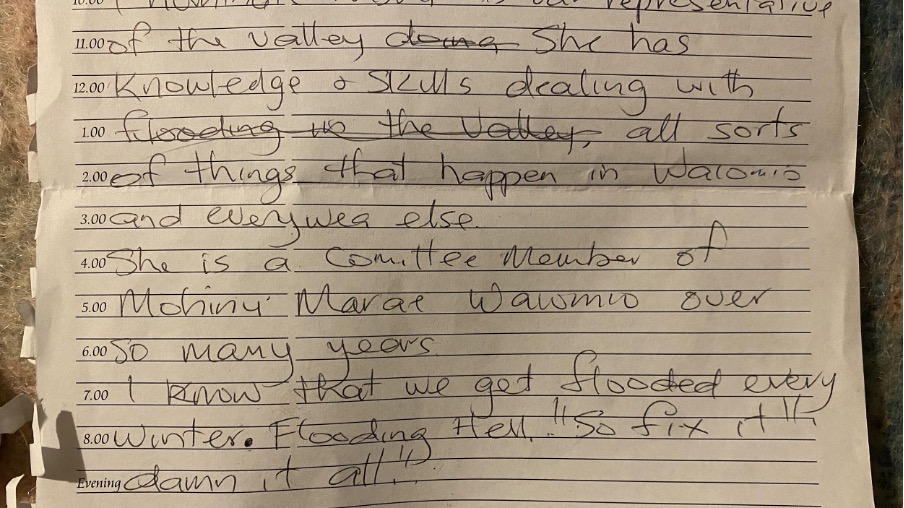 representative
11.00 of the valley doing She has
12.00 Knowledge & Skills dealing with
1.00 flooding in the Valley, all sorts
2.00 of things that happen in Waiomio
3.00 and everywea else.
4.00 She is a Comittee Member of
5.00 Mohinui Marae Waiomio over
6.00 So many years
7.00 I Know that we get flooded every
8.00 Winter. Flooding Hell. "So fix it"
Evening damn it all"